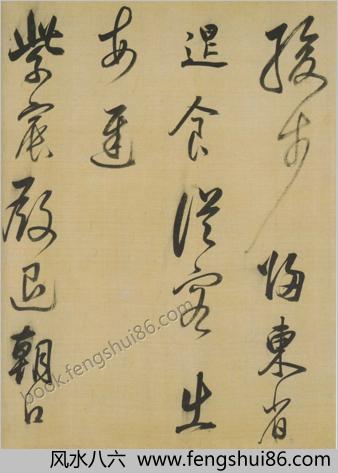 緩步歸東省
退食從容出
每遲
紫宸殿退朝口
book.fengshui86.com
风水八六 www.fengshui86.com